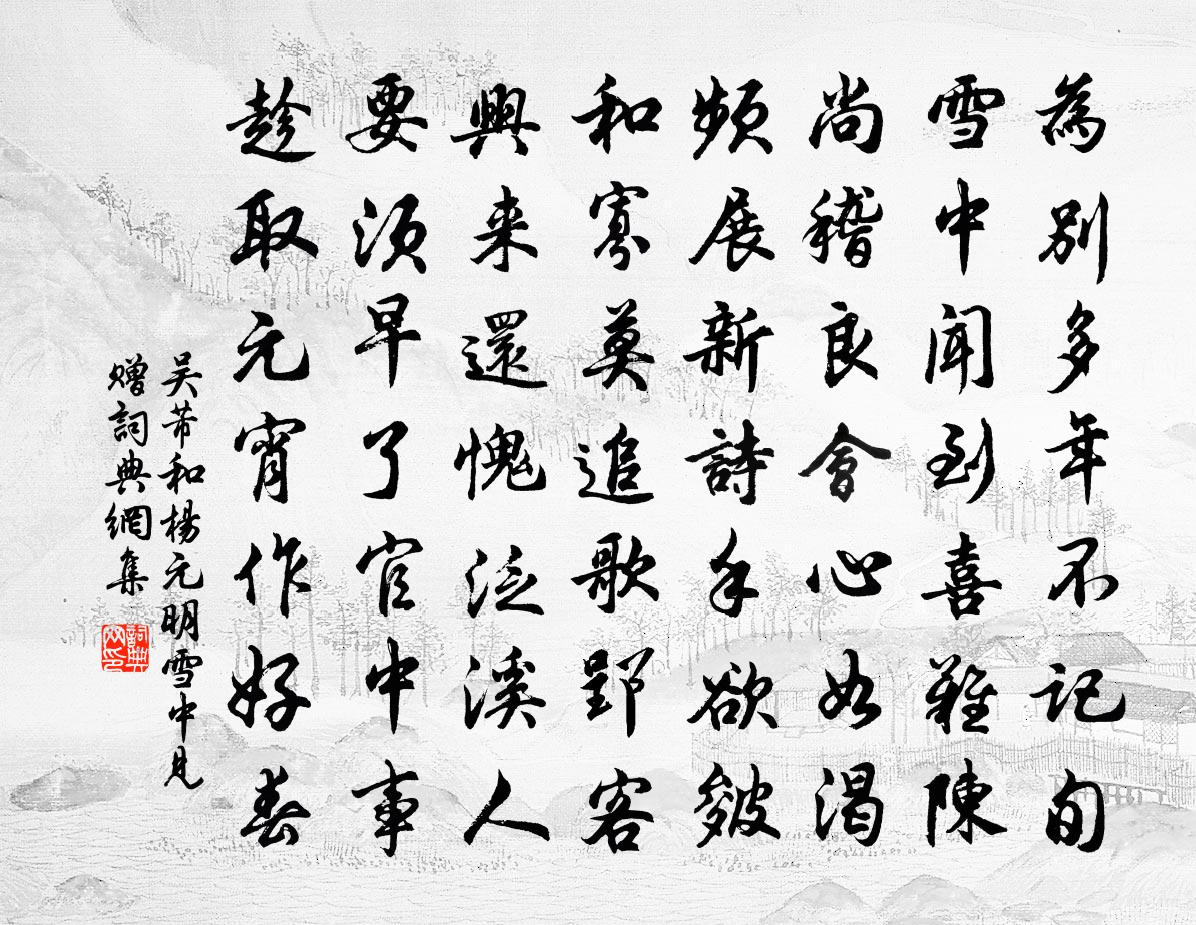 為別多年不記旬
雪中聞到喜難陳
尚稽良會心如渴
頻展新詩手欲皴
和寡莫追歌郢客
興來還愧泛溪人
要須早了官中事
趁取元宵作好春
吳芾和楊元明雪中見
贈詞典網集
詞典
网印